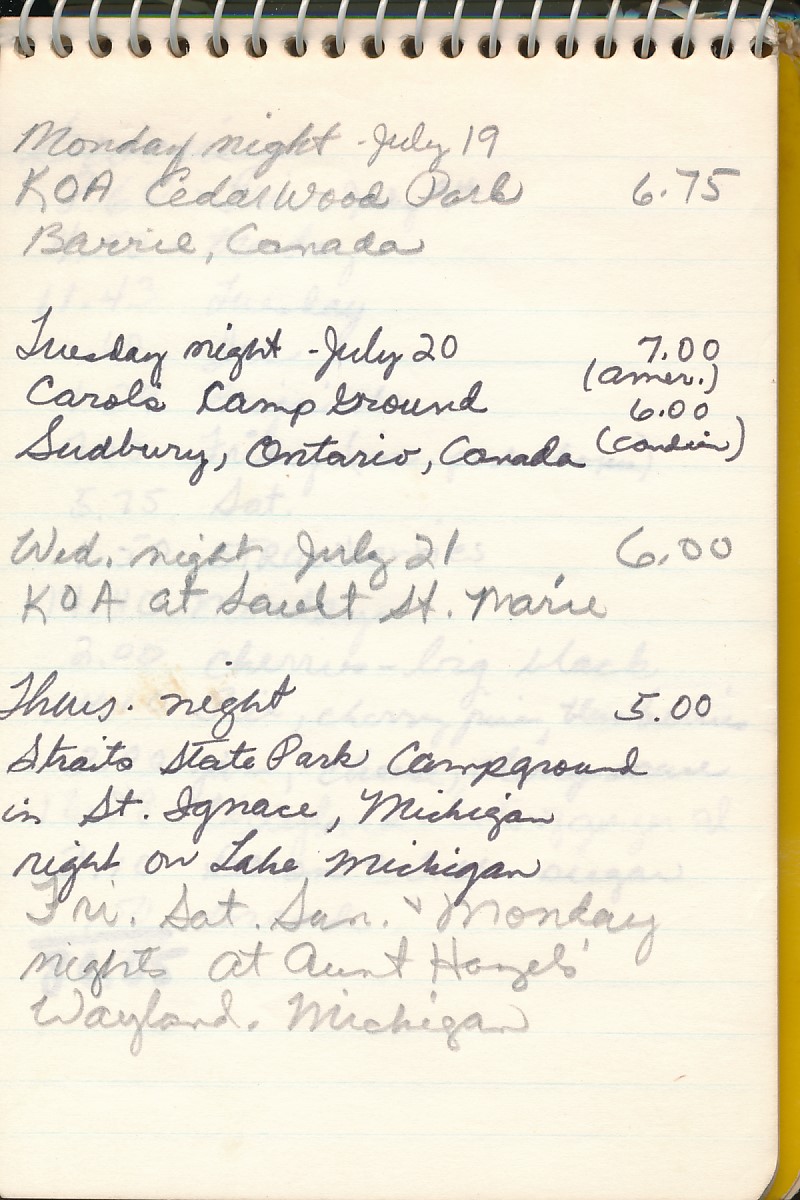 Monday night - July 19
KOA Cedarwood Park 6.75
Barrie, Canada
Tuesday night - July 20 7.00
(amer.)
Carol's Camp Ground 6.00
Sudbury, Ontario, Canada (candian)
Wed. night July 21 6.00
KOA at Sault St. Marie
Thurs. night 5.00
Straits State Park Campground
in St. Ignace, Michigan
right on Lake Michigan
Fri. Sat. Sun. & Monday
nights at Aunt Hazels'
Wayland, Michigan